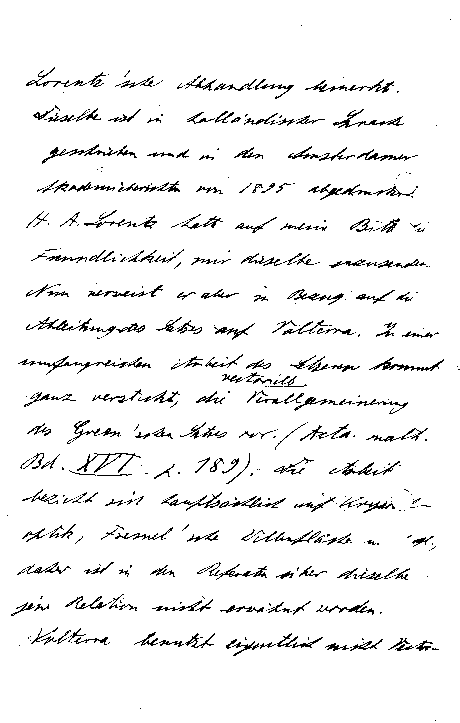 Lorentz'sche Abhandlung bemerkt.
Dieselbe ist in holländischer Sprache
geschrieben und in den Amsterdamer
Akademieberichten von 1895 abgedruckt.
H. A. Lorentz hatte auf meine Bitte die
Freundlichkeit, mir dieselbe zuzusenden.
Nun verweist er aber in Bezug auf die
Ableitung des Satzes auf Volterra. In einer
umfangreichen Arbeit des Letzteren kommt
ganz versteckt, die vectorielle Verallgemeinerung
des Green'schen Satzes vor. (Acta math.
Bd. XVI p. 189). Die Arbeit
bezieht sich hauptsächlich auf
optik, Fresnel'sche Wellenfläche u.
daher ist in den Referaten über dieselbe
jene Relation nicht erwähnt worden.
Volterra benutzt eigentlich nicht Vector-